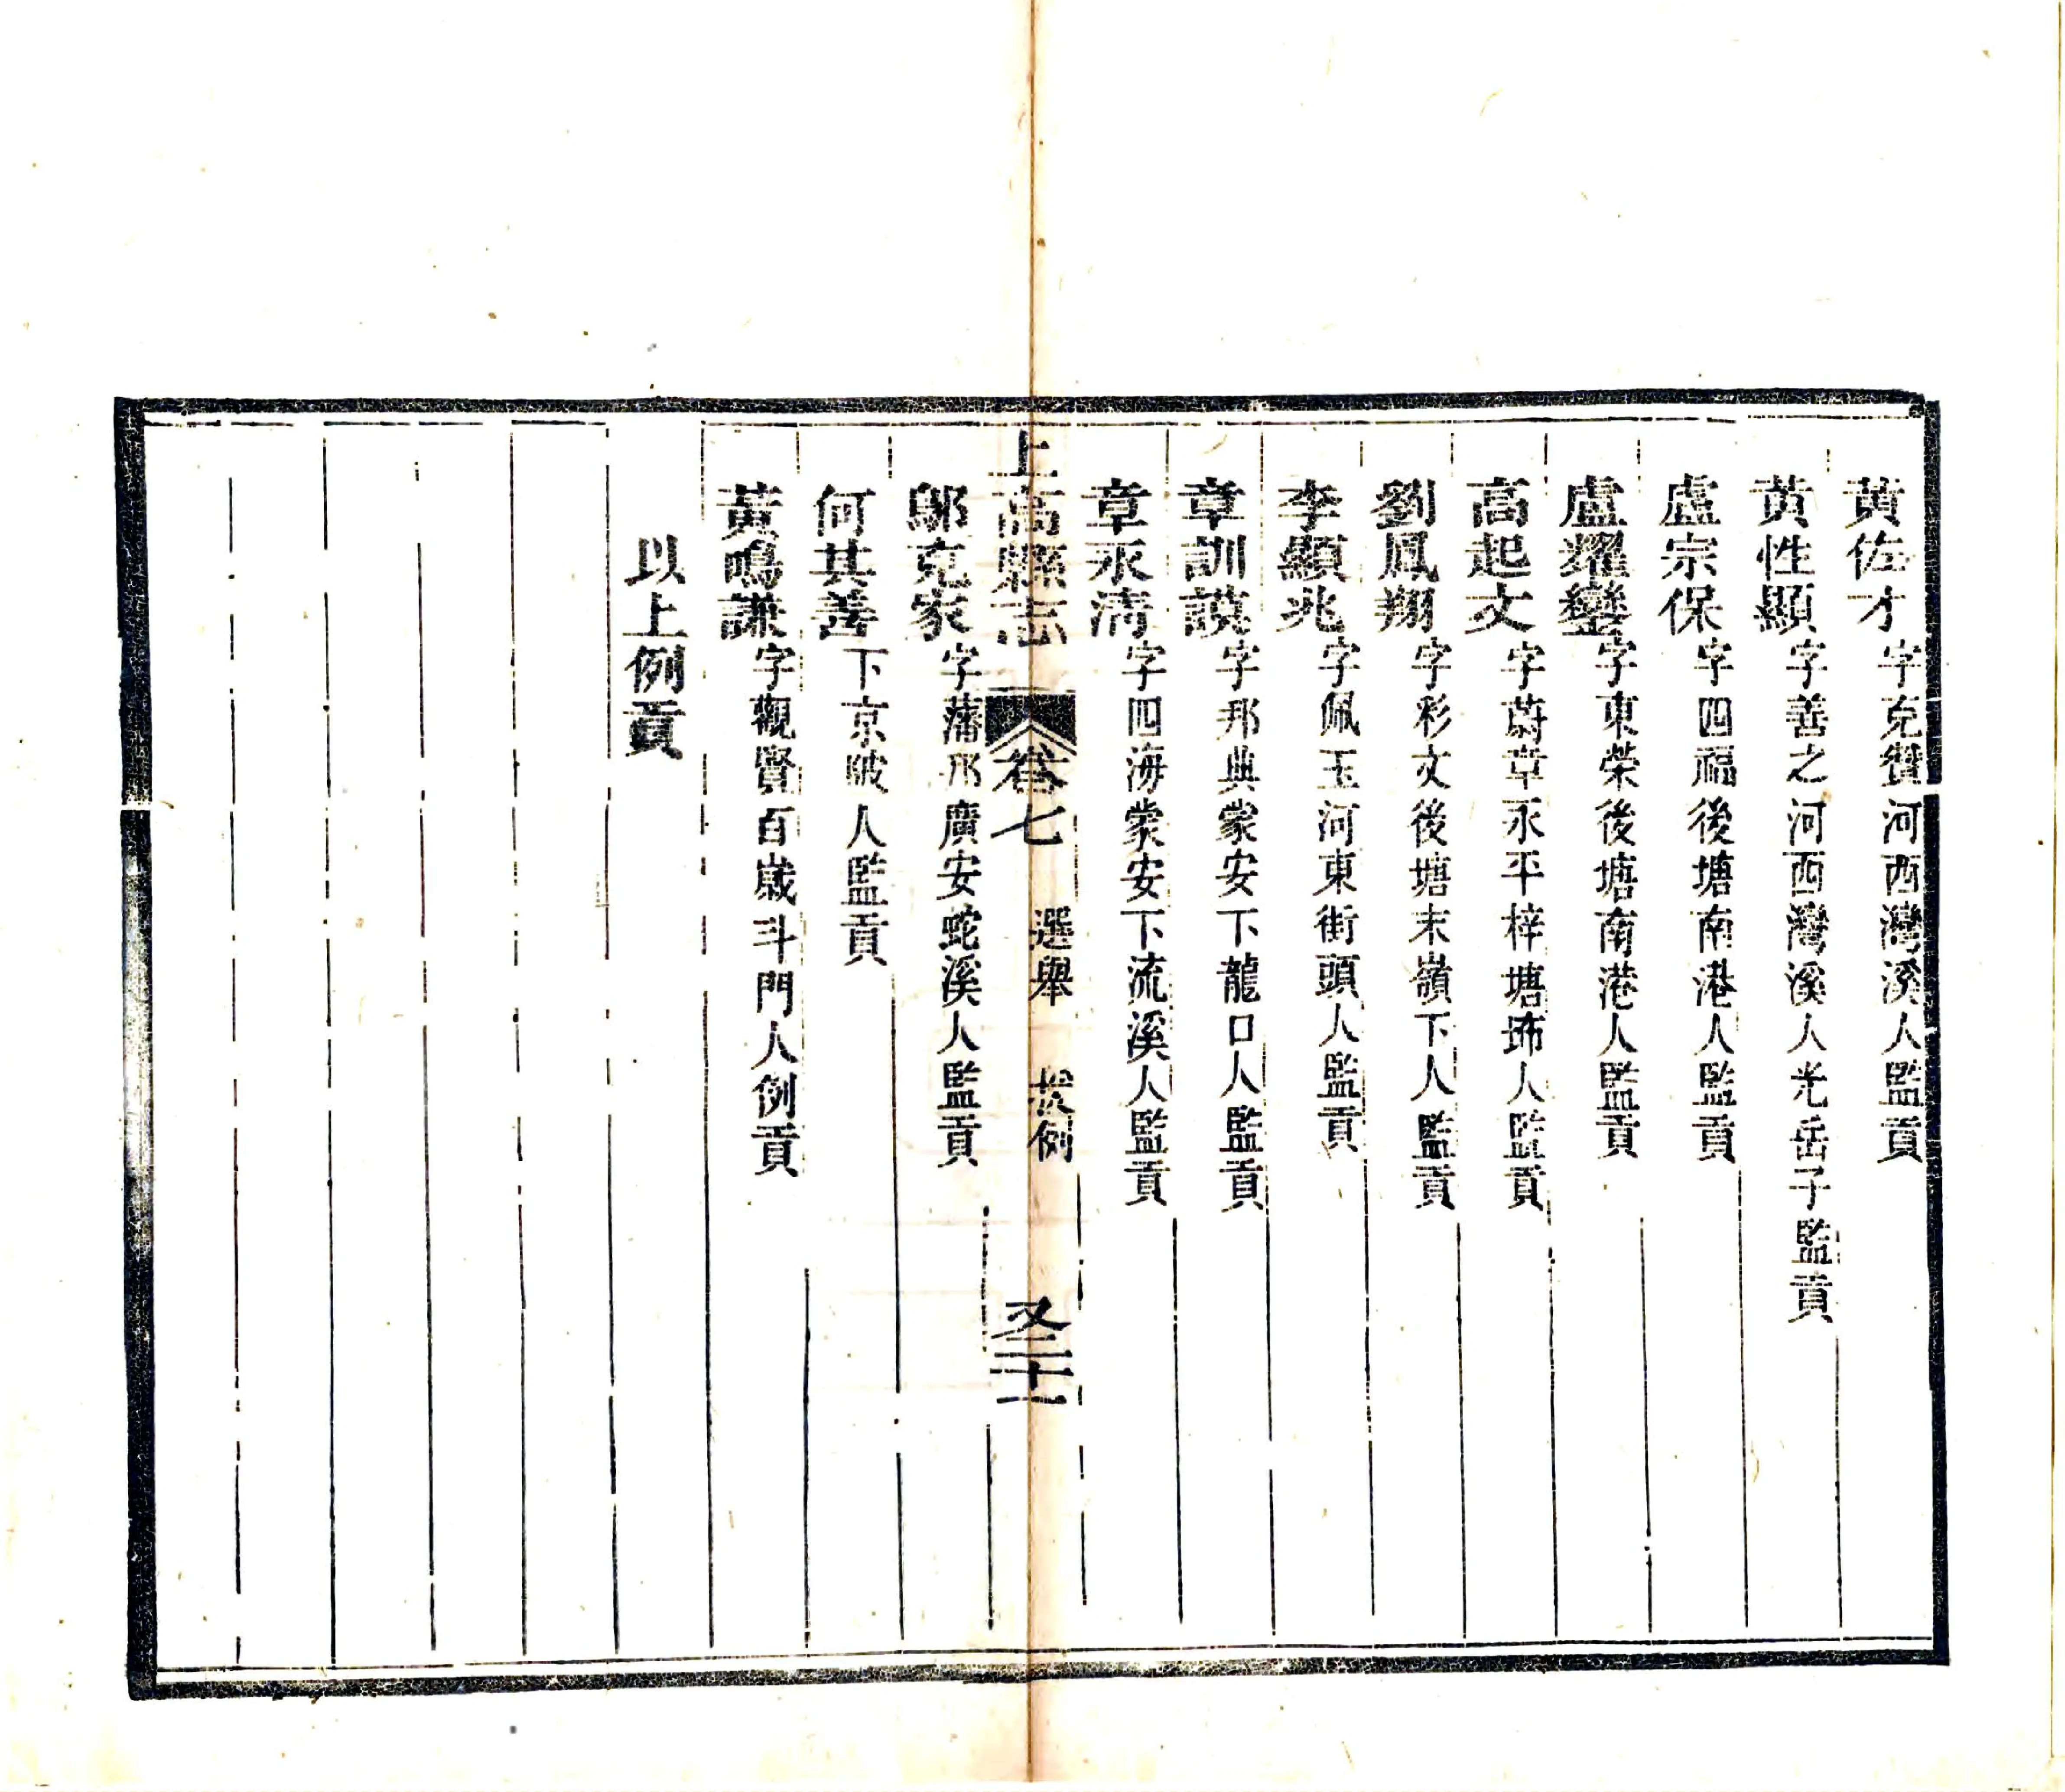 黄佐才字克贊河西灣溪人監貢
黄性顯字善之河西灣溪人光岳子監貢
盧宗保字四福後塘南港人監貢
盧耀鑾字東榮後塘南港人監貢
高起文字蔚章永平梓塘埠人監貢
劉鳳翔字彩文後塘末嶺下人監貢
李顯兆字佩玉河東街頭人監貢
章訓謨字邦典蒙安下龍口人監貢
章永清字四海蒙安下流溪人監貢
上高縣志 卷七 選舉 援例 又二十一
鄔克家字藩邦廣安蛇溪人監貢
何其善下京陂人監貢
黃鳴謙字觀賢百嵗斗門人例貢
以上例貢